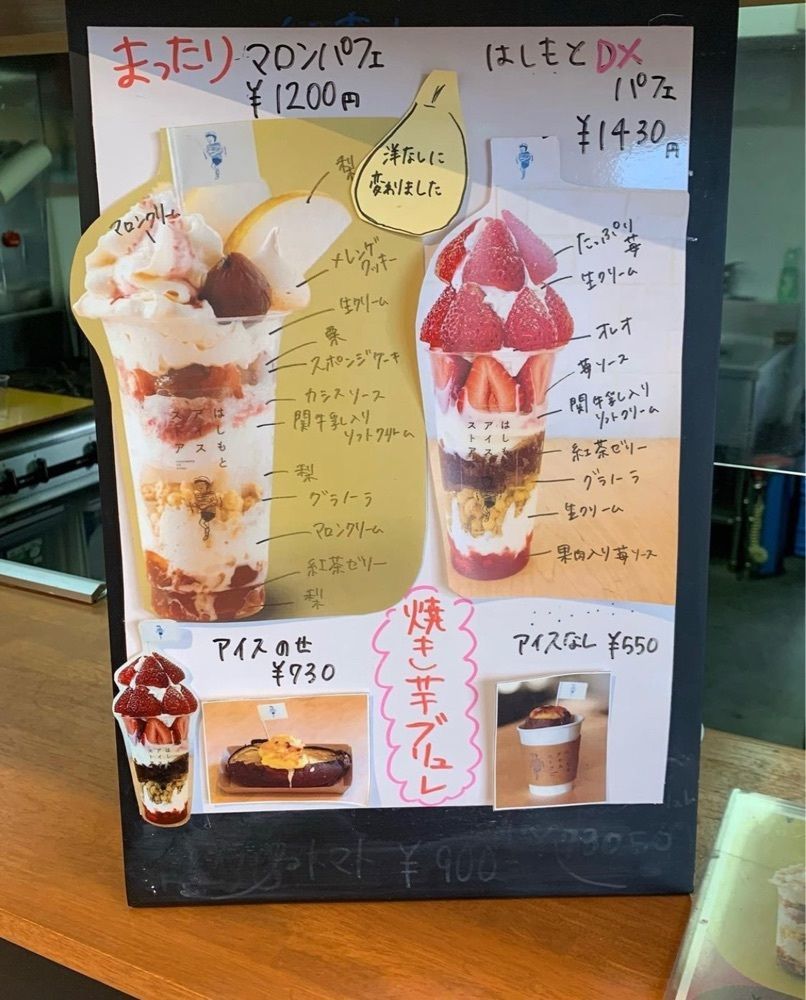 まったりマロンパフェ
¥1200円
はしもとDX
パフェ
¥1430円
洋なしに
変わりました
梨
マロンクリーム
メレンゲ
クッキー
生クリーム
栗
スポンジケーキ
カシスソース
関牛乳入り
ソフトクリーム
梨
グラノーラ
マロンクリーム
紅茶ゼリー
梨
はしもと
アイス
ストア
たっぷり
苺
生クリーム
オレオ
苺ソース
関牛乳入り
ソフトクリーム
紅茶ゼリー
グラノーラ
生クリーム
果肉入り苺ソース
はしもと
アイス
ストア
アイスのせ
¥730
焼き芋ブリュレ
アイスなし ¥550
トマト ¥900